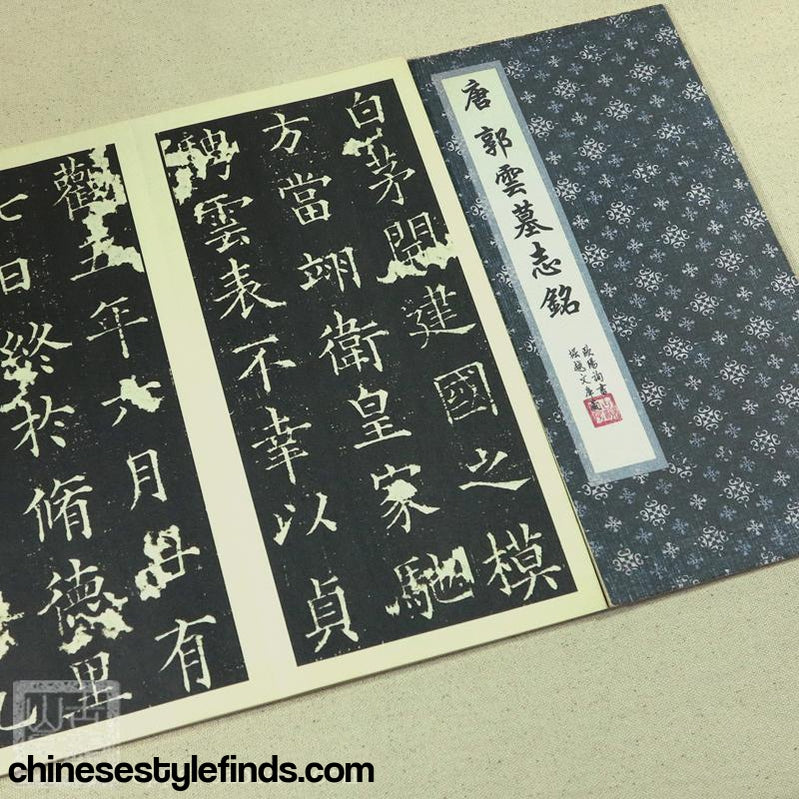 唐郭雲墓志銘
歐陽詢書
白茅開建國之模
方當翊衛皇家馳
騁雲表不幸以貞
觀五年六月有
七日終於脩德里
chinesestylefinds.com